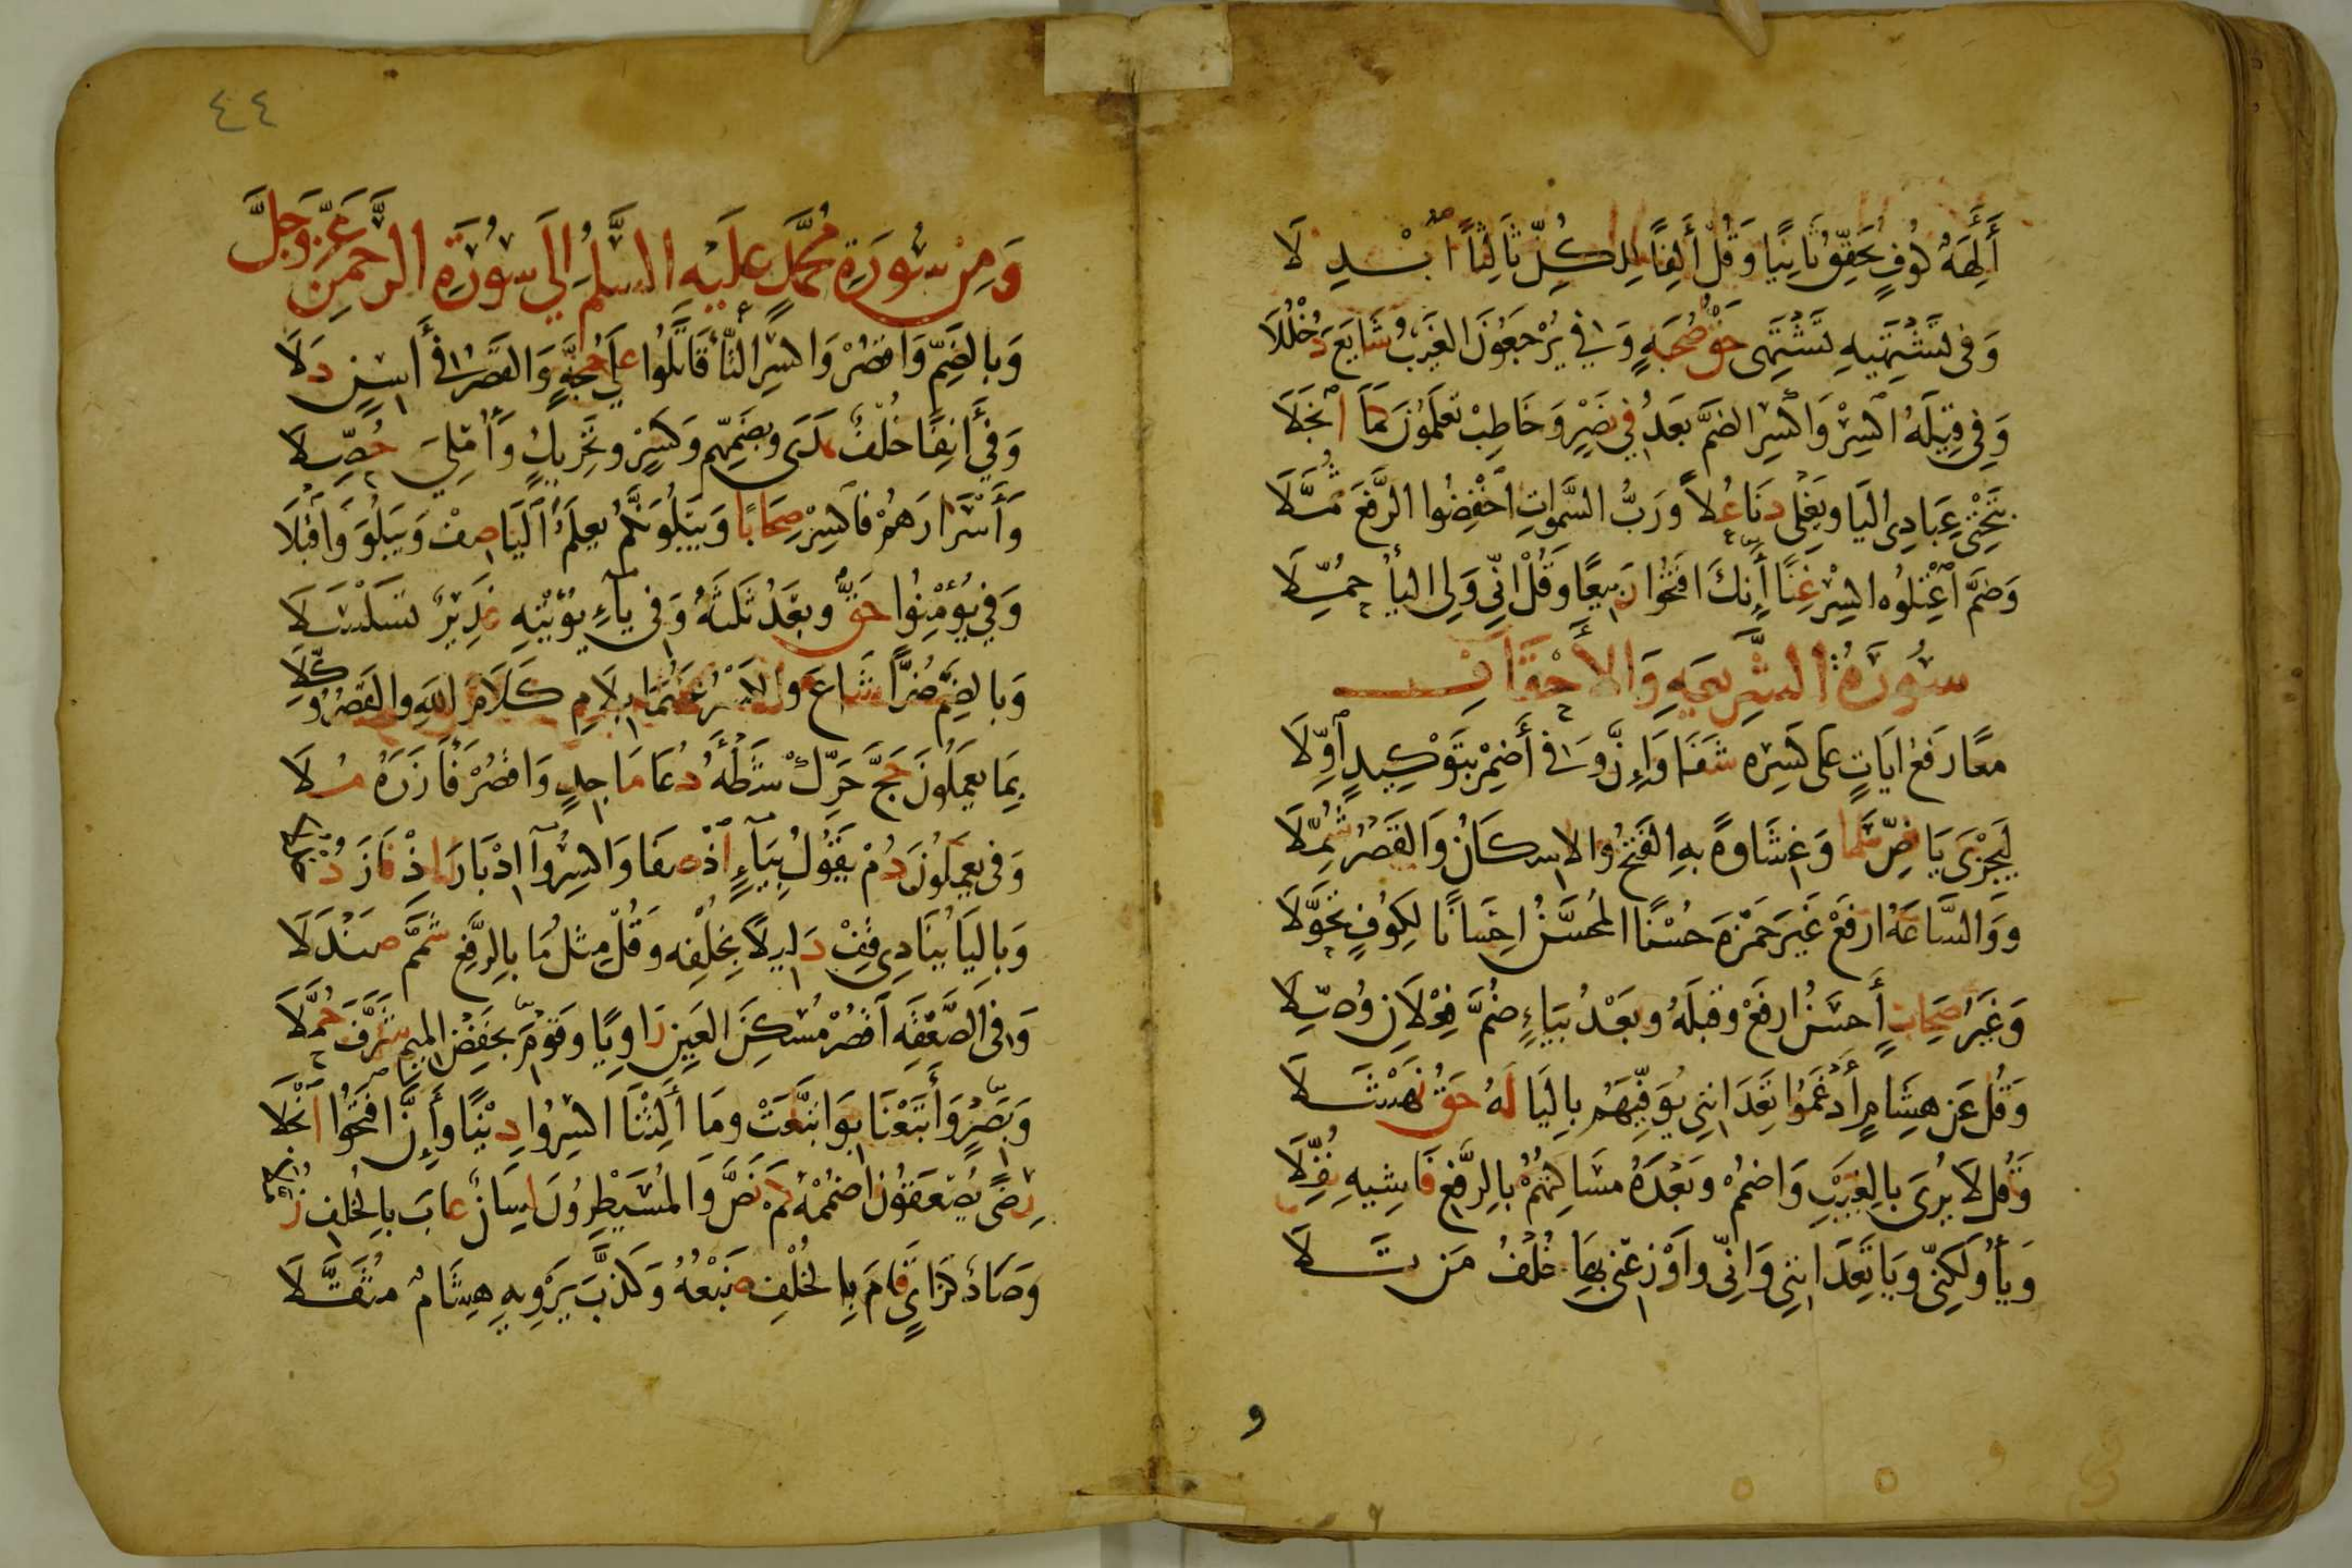 أَآلِهَةٌ كُوفٍ يُحَقِّقُ ثَانِيًا وَقُلْ أَلِفًا لِلكُلِّ ثَالِثًا ابْدِلَا
وَفي تَشْتَهِيهِ تَشْتَهِي حَقُّ صُحْبَةٍ وَفي يُرْجَعُونَ الغَيْبُ شَايَعَ دُخْلُلَا
وَفي قِيلَهُ اكْسِرْ وَاكْسِرِ الضَّمَّ بَعْدُ في نَصِيرٍ وَخَاطِبْ تَعْلَمُونَ كَمَا انْجَلَا
بِتَحْتِي عِبَادِي اليَا وَيَغْلِي دَنَا عُلاً وَرَبُّ السَّموَاتِ اخْفِضُوا الرَّفْعَ ثُمَّلَا
وَضَمَّ اعْتِلُوهُ اكْسِرْ غِنًا أَنَّكَ افْتَحُوا رَبِيعًا وَقُلْ انِّي وَلِي اليَأُ حُمِّلَا
سُورَةُ الشَّرِيعَةِ وَالأَحْقَافِ
مَعًا رَفْعُ ايَاتٍ عَلى كَسْرِهِ شَفَا وَإِنَّ وَفي أَضْمِرْ بِتَوْكِيدٍ اوِّلَا
لِيَجْزِيَ يَا نَصٍّ سَمَا وَغِشَاوَةً بِهِ الفَتْحُ وَالاسْكَانُ وَالقَصْرُ شُمِّلَا
وَوَالسَّاعَةُ ارْفَعْ غَيْرَ حَمْزَةَ حُسْنًا المُحَسَّنُ احْسَانًا لِكُوفٍ تَحَوَّلَا
وَغَيْرُ صِحَابٍ أَحْسَنُ ارْفَعْ وَقَبْلَهُ وَبَعْدُ بِيَاءٍ ضُمَّ فِعْلَانِ وُصِّلَا
وَقُلْ عَنْ هِشَامٍ أَدْغَمُوا تَعِدَانِنِي يُوَفِّيَهُم بِاليَا لَهُ حَقُّ نَهْشَلَا
وَقُل لَا يُرَى بِالغَيْبِ وَاضْمُمْ وَبَعْدَهُ مَسَاكِنُهُمْ بِالرَّفْعِ فَاشِيهِ نُفِّلَا
وَيَأُ وَلكِنِّي وَيَا تَعِدَانِنِي وَانِّي وَاَوْزِعْنِي بِهَا خُلْفُ مَن تَلَا
و
٤٤
وَمِنْ سُورَةِ مُحَمَّدٍ عَلَيْهِ السَّلَمُ الَى سُورَةِ الرَّحْمنِ عَزَّ وَجَلَّ
وَبِالضَّمِّ وَاقْصُرْ وَاكْسِرِ التَّأَ قَاتَلُوا عَلَى حُجَّةٍ وَالقَصْرُ في أَاسِنٍ دَلَا
وَفي أَانِفًا خُلْفٌ هَدَى وَبِضَمِّهِمْ وَكَسْرٍ وَتَحْرِيكٍ وَأُمْلِيَ حُصِّلَا
وَأَسْرَارَهُمْ فَاكْسِرْ صِحَابًا وَيَبْلُوَنَّكُمْ يَعْلَمَ اليَا صِفْ وَيَبْلُوَ وَاقْبَلَا
وَفي يُؤْمِنُوا حَقٌّ وَبَعْدُ ثَلثَةٌ وَفي يَاءِ يُؤْتِيهِ غَدِيرٌ تَسَلْسَلَا
وَبِالضَّمِّ ضُرًّا شَاعَ وَالكَسْرُ عَنْهُمَا بِلَامِ كَلَامَ اللهِ وَالقَصْرُ وُكِّلَا
بِمَا يَعْمَلُونَ حَجَّ حَرَّكَ شَطْأَهُ دُعَا مَاجِدٍ وَاقْصُرْ فَأَزَرَهُ مُلَا
وَفي يَعْمَلُونَ دُمْ يَقُولُ بِيَاءٍ اذْ صَفَا وَاكْسِرُوا ادْبَارَ اذْ فَازَ دُخْلُلَا
وَبِاليَا يُنَادِي قِفْ دَلِيلاً بِخُلْفِهِ وَقُلْ مِثْلُ مَا بِالرَّفْعِ شَمَّمَ صَنْدَلَا
وَفي الصَّعْقَةِ اقْصُرْ مُسْكِنَ العَيْنِ رَاوِيًا وَقَوْمَ بِخَفْضِ المِيمِ شَرَّفَ حُمَّلَا
وَبَصْرٍ وَأَتْبَعْنَا بِوَاتَّبَعَتْ وَمَا أَلِتْنَا اكْسِرُوا دِنْيًا وَإِنَّ افْتَحُوا انْجَلَا
رِضًى يُصْعَقُونَ اضْمُمْهُ كَمْ نَصَّ وَالمُسَيْطِرُونَ لِسَانٌ عَابَ بِالخُلْفِ زُمَّلَا
وَصَادٌ كَزَايٍ قَامَ بِالخُلْفِ ضَبْعُهُ وَكَذَّبَ يَرْوِيهِ هِشَامٌ مُثَقَّلَا